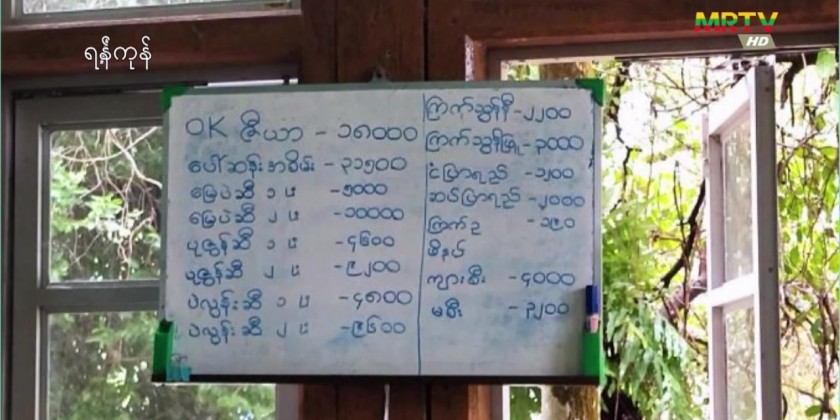 MRTV
HD
ရန်ကုန်
OK ဇီယာ - ၁၈၀၀၀
ပေါ်ဆန်းအစိမ်း - ၃၁၅၀၀
မြေပဲဆီ ၁ ပုံး - ၅၀၀၀
မြေပဲဆီ ၂ ပုံး - ၁၀၀၀၀
ပုဇွန်ဆီ ၁ ပုံး - ၄၆၀၀
ပုဇွန်ဆီ ၂ ပုံး - ၉၂၀၀
ပဲလွန်းဆီ ၁ ပုံး - ၄၈၀၀
ပဲလွန်းဆီ ၂ ပုံး - ၉၆၀၀
ကြက်သွန်နီ - ၂၂၀၀
ကြက်သွန်ဖြူ - ၃၀၀၀
ငံပြာရည် - ၁၂၀၀
ဆယ်ပြာရည် - ၂၀၀၀
ကြက်ဥ - ၁၉၀
ဖိနပ်
ကျားစီး - ၄၀၀၀
မစီး - ၃၂၀၀